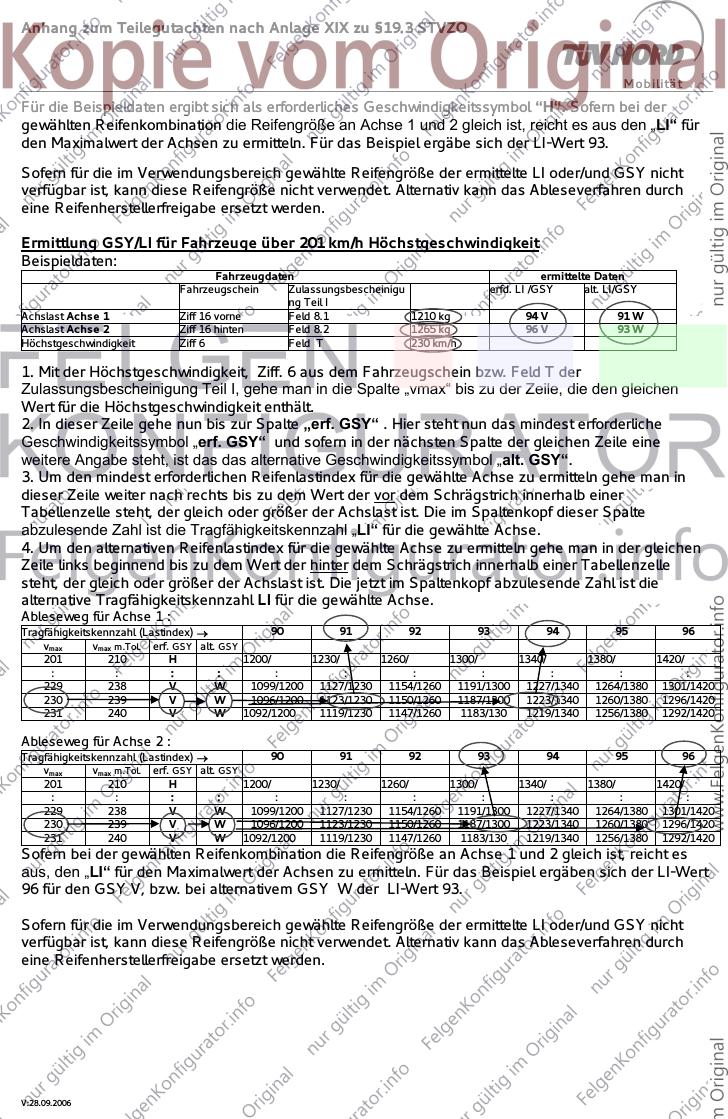 Anhang zum Teilegutachten nach Anlage XIX zu §19.3 STVZO
Kopie vom Original
TÜV NORD
Mobilität
Für die Beispieldaten ergibt sich als erforderliches Geschwindigkeitssymbol "H". Sofern bei der
gewählten Reifenkombination die Reifengröße an Achse 1 und 2 gleich ist, reicht es aus den „LI“ für
den Maximalwert der Achsen zu ermitteln. Für das Beispiel ergäbe sich der LI-Wert 93.
Sofern für die im Verwendungsbereich gewählte Reifengröße der ermittelte LI oder/und GSY nicht
verfügbar ist, kann diese Reifengröße nicht verwendet. Alternativ kann das Ableseverfahren durch
eine Reifenherstellerfreigabe ersetzt werden.
Ermittlung GSY/LI für Fahrzeuge über 201 km/h Höchstgeschwindigkeit
Beispieldaten:
Fahrzeugdaten ermittelte Daten
Fahrzeugschein Zulassungsbescheinigu erfd. LI /GSY alt. LI/GSY
ng Teil I
Achslast Achse 1 Ziff 16 vorne Feld 8.1 1210 kg 94 V 91 W
Achslast Achse 2 Ziff 16 hinten Feld 8.2 1265 kg 96 V 93 W
Höchstgeschwindigkeit Ziff 6 Feld T 230 km/h
FELGEN
1. Mit der Höchstgeschwindigkeit, Ziff. 6 aus dem Fahrzeugschein bzw. Feld T der
Zulassungsbescheinigung Teil I, gehe man in die Spalte „vmax“ bis zu der Zeile, die den gleichen
Wert für die Höchstgeschwindigkeit enthält.
2. In dieser Zeile gehe nun bis zur Spalte „erf. GSY“ . Hier steht nun das mindest erforderliche
Geschwindigkeitssymbol „erf. GSY“ und sofern in der nächsten Spalte der gleichen Zeile eine
KONFIGURATOR
weitere Angabe steht, ist das das alternative Geschwindigkeitssymbol „alt. GSY“.
3. Um den mindest erforderlichen Reifenlastindex für die gewählte Achse zu ermitteln gehe man in
dieser Zeile weiter nach rechts bis zu dem Wert der vor dem Schrägstrich innerhalb einer
Tabellenzelle steht, der gleich oder größer der Achslast ist. Die im Spaltenkopf dieser Spalte
abzulesende Zahl ist die Tragfähigkeitskennzahl „LI“ für die gewählte Achse.
4. Um den alternativen Reifenlastindex für die gewählte Achse zu ermitteln gehe man in der gleichen
FelgenKonfigurator.info
Zeile links beginnend bis zu dem Wert der hinter dem Schrägstrich innerhalb einer Tabellenzelle
steht, der gleich oder größer der Achslast ist. Die jetzt im Spaltenkopf abzulesende Zahl ist die
alternative Tragfähigkeitskennzahl LI für die gewählte Achse.
Ableseweg für Achse 1 :
Tragfähigkeitskennzahl (Lastindex) → 90 91 92 93 94 95 96
vmax vmax m.Tol. erf. GSY alt. GSY
201 210 H 1200/ 1230/ 1260/ 1300/ 1340/ 1380/ 1420/
: : : : : : : : : : :
229 238 V W 1099/1200 1127/1230 1154/1260 1191/1300 1227/1340 1264/1380 1301/1420
230 239 V W 1096/1200 1123/1230 1150/1260 1187/1300 1223/1340 1260/1380 1296/1420
231 240 V W 1092/1200 1119/1230 1147/1260 1183/130 1219/1340 1256/1380 1292/1420
Ableseweg für Achse 2 :
Tragfähigkeitskennzahl (Lastindex) → 90 91 92 93 94 95 96
vmax vmax m.Tol. erf. GSY alt. GSY
201 210 H 1200/ 1230/ 1260/ 1300/ 1340/ 1380/ 1420/
: : : : : : : : : : :
229 238 V W 1099/1200 1127/1230 1154/1260 1191/1300 1227/1340 1264/1380 1301/1420
230 239 V W 1096/1200 1123/1230 1150/1260 1187/1300 1223/1340 1260/1380 1296/1420
231 240 V W 1092/1200 1119/1230 1147/1260 1183/130 1219/1340 1256/1380 1292/1420
Sofern bei der gewählten Reifenkombination die Reifengröße an Achse 1 und 2 gleich ist, reicht es
aus, den „LI“ für den Maximalwert der Achsen zu ermitteln. Für das Beispiel ergäben sich der LI-Wert
96 für den GSY V, bzw. bei alternativem GSY W der LI-Wert 93.
Sofern für die im Verwendungsbereich gewählte Reifengröße der ermittelte LI oder/und GSY nicht
verfügbar ist, kann diese Reifengröße nicht verwendet. Alternativ kann das Ableseverfahren durch
eine Reifenherstellerfreigabe ersetzt werden.
V:28.09.2006
nur gültig im Original
www.FelgenKonfigurator.info